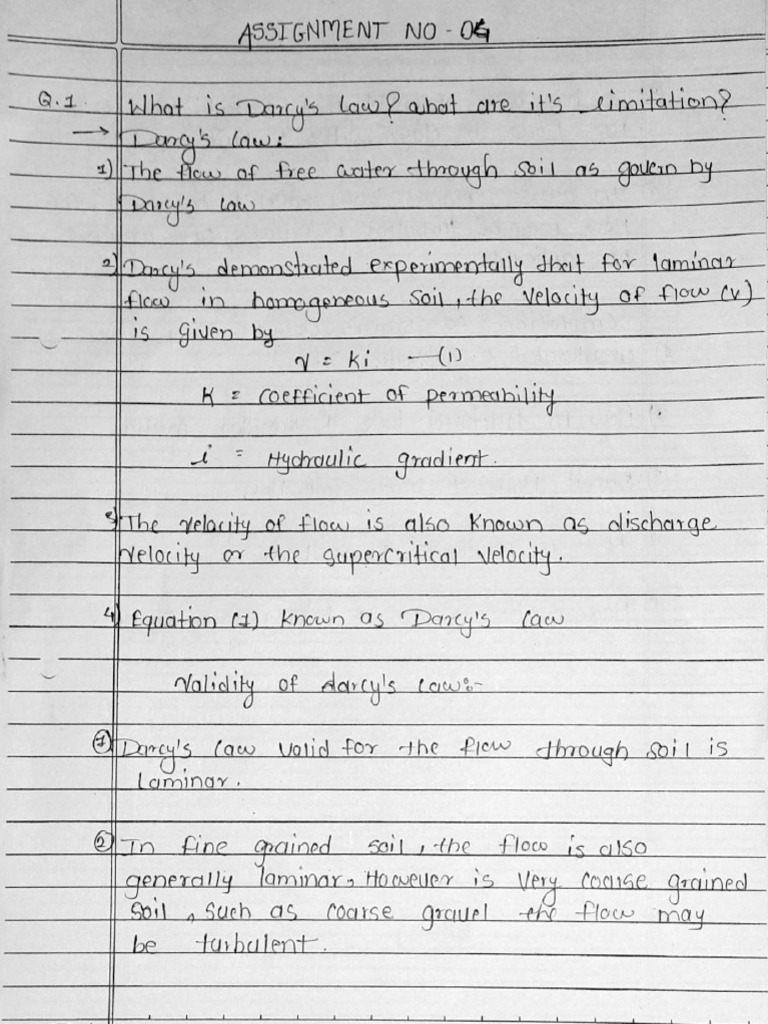 ASSIGNMENT NO - 04
Q.1 What is Darcy's law? what are it's limitation?
→ Darcy's law:
1) The flow of free water through soil as govern by
Darcy's law
2) Darcy's demonstrated experimentally that for laminar
flow in homogeneous soil, the velocity of flow (v)
is given by
v = ki - (1)
K = coefficient of permeability
i = Hydraulic gradient.
3) The velocity of flow is also known as discharge
velocity or the supercritical velocity.
4) Equation (1) known as Darcy's law
Validity of darcy's law:-
1) Darcy's law valid for the flow through soil is
laminar.
2) In fine grained soil, the flow is also
generally laminar, However is very coarse grained
soil, such as coarse gravel the flow may
be turbulent.